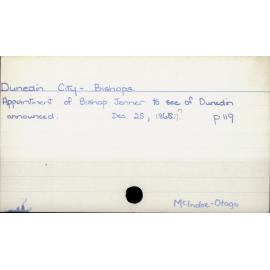 Dunedin City - Bishops
Appointment of Bishop Jenner to see of Dunedin
announced. Dec 25, 1865.? p 119
McIndoe - Otago